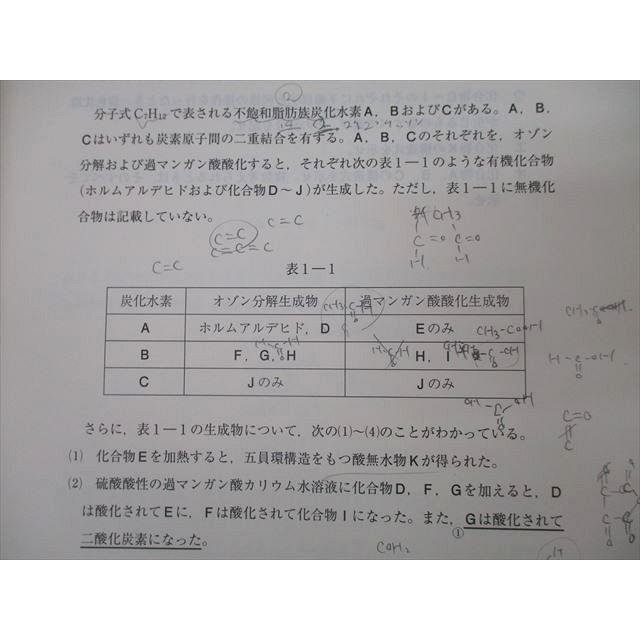 分子式C₇H₁₂で表される不飽和脂肪族炭化水素A，BおよびCがある。A，B，
Cはいずれも炭素原子間の二重結合を有する。A，B，Cのそれぞれを，オゾン
分解および過マンガン酸酸化すると，それぞれ次の表1−1のような有機化合物
(ホルムアルデヒドおよび化合物D〜J)が生成した。ただし，表1−1に無機化
合物は記載していない。
C=C
C=C
C=C=C
C=C
表1−1
炭化水素 オゾン分解生成物 過マンガン酸酸化生成物
A ホルムアルデヒド，D Eのみ
CH₃-COOH
B F，G，H H，I
C Jのみ Jのみ
さらに，表1−1の生成物について，次の(1)〜(4)のことがわかっている。
(1) 化合物Eを加熱すると，五員環構造をもつ酸無水物Kが得られた。
(2) 硫酸酸性の過マンガン酸カリウム水溶液に化合物D，F，Gを加えると，D
は酸化されてEに，Fは酸化されて化合物Iになった。また，Gは酸化されて
①
二酸化炭素になった。